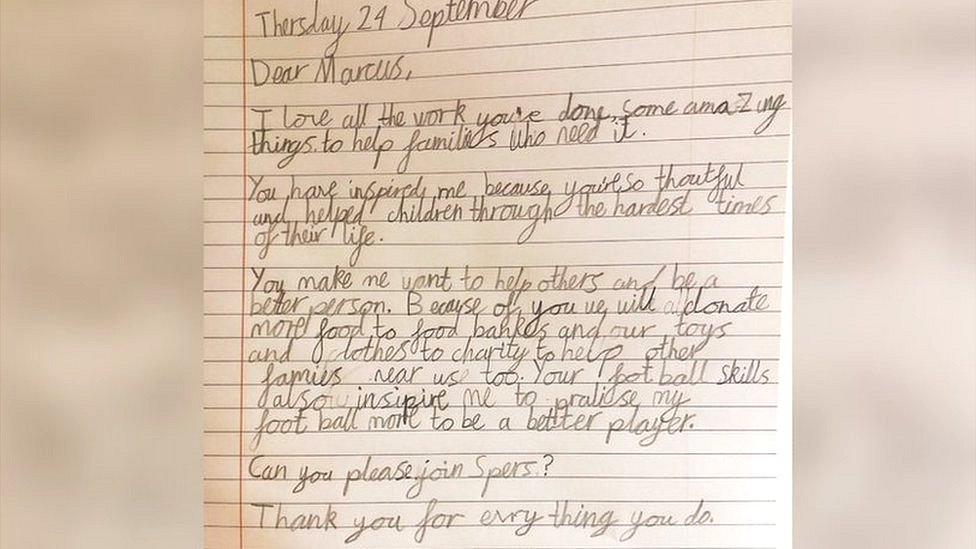 Thersday 24 September
Dear Marcus,
I love all the work you've done, some amaZing
things to help families who need it.
You have inspired me because you're so thoutful
and helped children through the hardest times
of their life.
You make me want to help others and be a
better person. Because of you we will donate
more food to food bankes and our toys
and clothes to charity to help other
famies near use too. Your foot ball skills
also insipire me to pratise my
foot ball more to be a better player.
Can you please join Spers?
Thank you for evry thing you do.